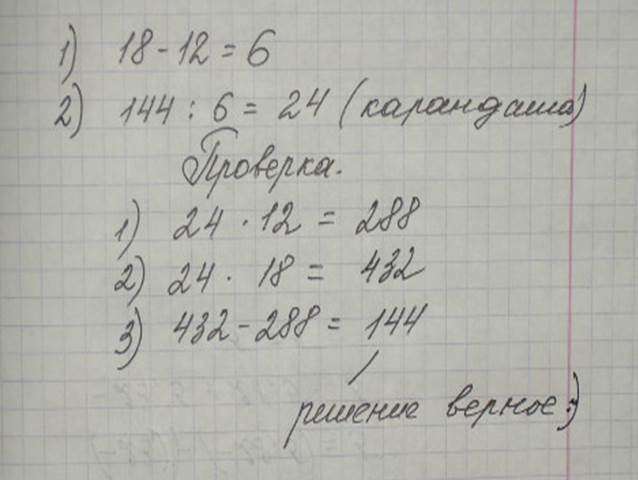 1) 18 - 12 = 6
2) 144 : 6 = 24 (карандаша)
Проверка.
1) 24 · 12 = 288
2) 24 · 18 = 432
3) 432 - 288 = 144
решение верное :)